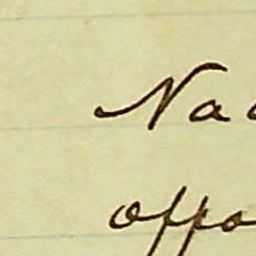 Na
oppo